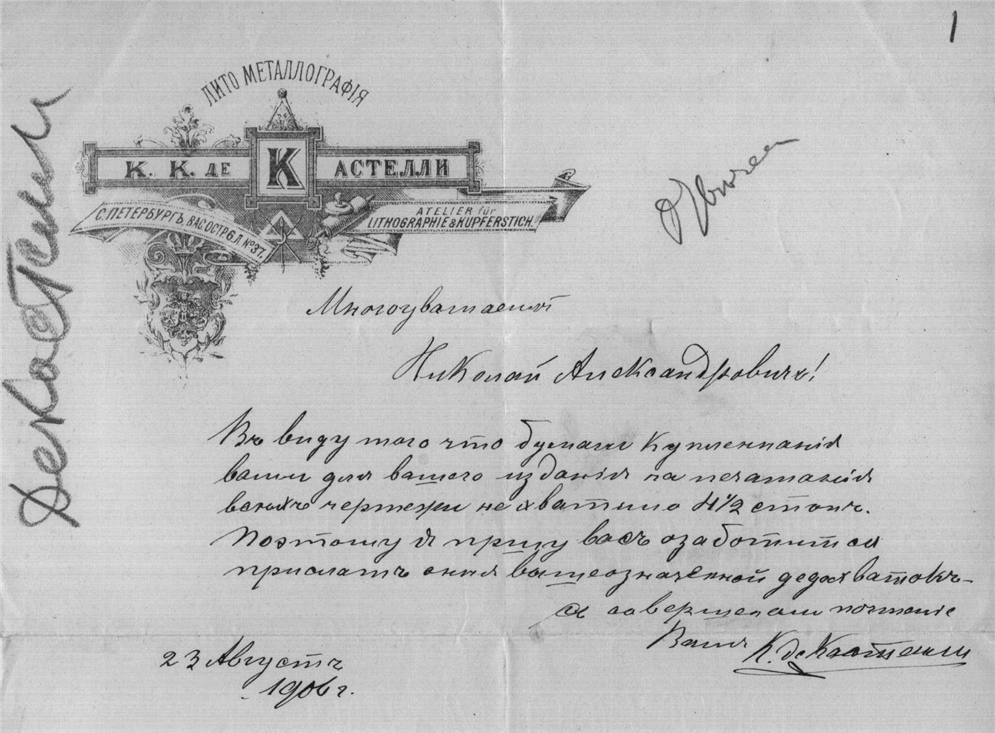 1
ЛИТО МЕТАЛЛОГРАФІЯ
К. К. ДЕ КАСТЕЛЛИ
С. ПЕТЕРБУРГЪ, ВАС. ОСТР. 6 Л. № 37.
ATELIER für
LITHOGRAPHIE & KUPFERSTICH.
Декастелли
Многоуважаемый
Николай Александровичъ!
Въ виду того что бумаги купленнанія
вами для вашего изданія на печатанія
всехъ чертежи не хватило 4 1/2 стопъ.
Поэтому я прошу васъ озаботится
прислать оная вышеозначенной недохватокъ
съ совершеннам почтеніе
Вашъ К. де Кастелли
23 Августъ
1906 г.